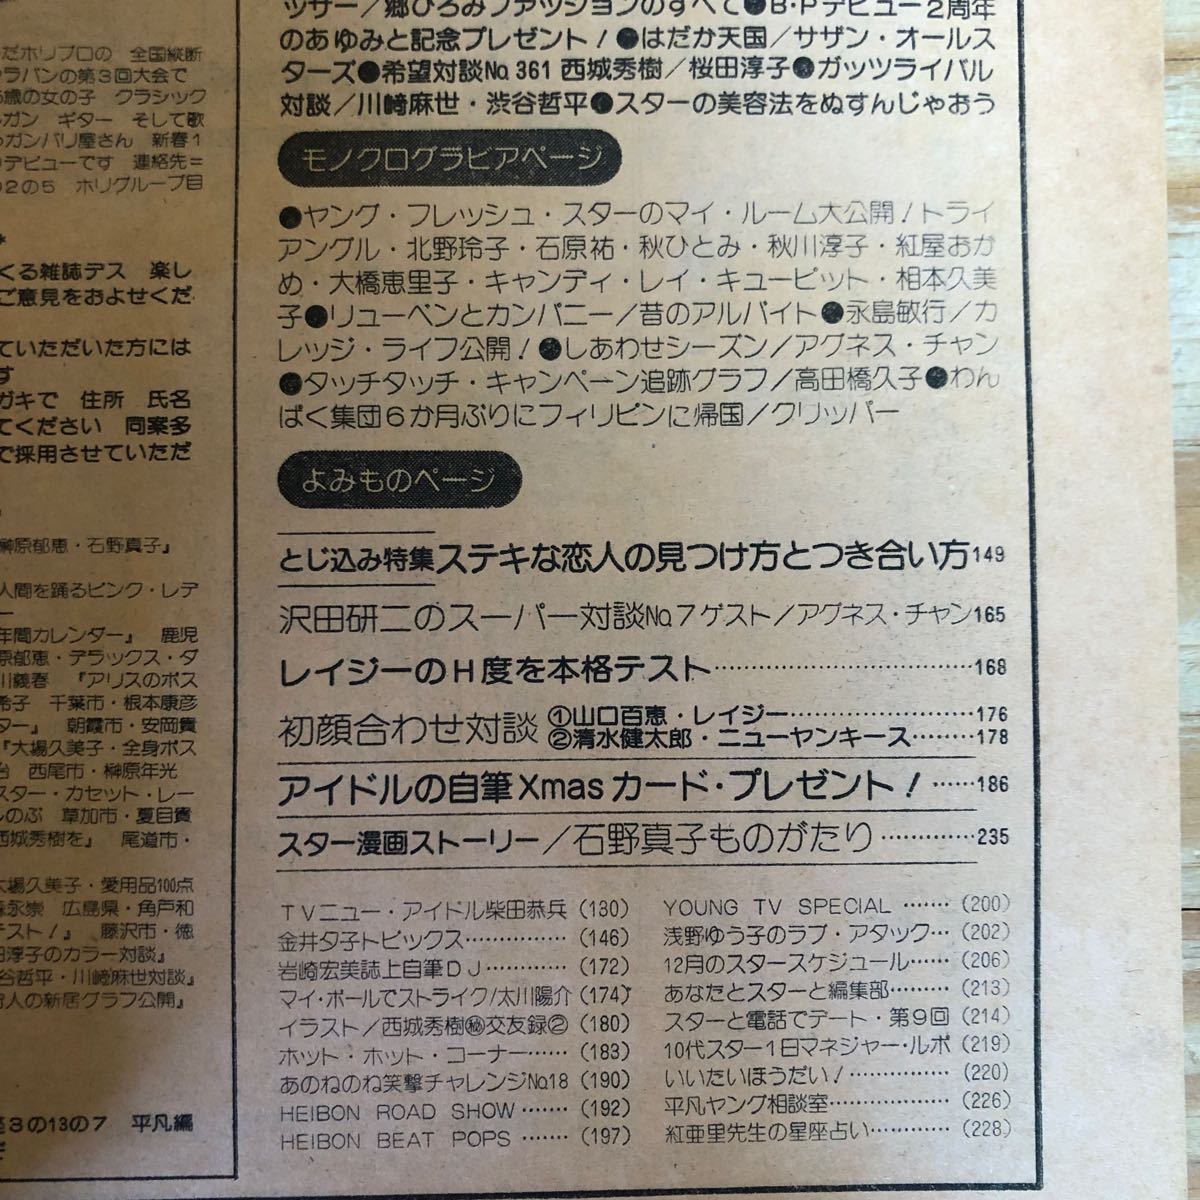 だホリプロの 全国縦断
ラバンの第3回大会で
歳の女の子 クラシック
ガン ギター そして歌
ガンバリ屋さん 新春1
デビューです 連絡先=
2の5 ホリグループ目
*
くる雑誌デス 楽し
ご意見をおよせくだ
ていただいた方には
す
ガキで 住所 氏名
てください 同案多
で採用させていただ
榊原郁恵・石野真子』
人間を踊るピンク・レデ
年間カレンダー』 鹿児
原郁恵・デラックス・ダ
川義春 『アリスのポス
希子 千葉市・根本康彦
ター』 朝霞市・安岡貴
『大場久美子・全身ポス
治 西尾市・榊原年光
スター・カセット・レー
しのぶ 草加市・夏目貴
西城秀樹を』 尾道市・
大場久美子・愛用品100点
森永崇 広島県・角戸和
テスト!』 藤沢市・徳
田淳子のカラー対談』
谷哲平・川﨑麻世対談』
人の新居グラフ公開』
座3の13の7 平凡編
ッサー/郷ひろみファッションのすべて●B・Pデビュー2周年
のあゆみと記念プレゼント!●はだか天国/サザン・オールス
ターズ●希望対談No.361 西城秀樹/桜田淳子●ガッツライバル
対談/川﨑麻世・渋谷哲平●スターの美容法をぬすんじゃおう
モノクログラビアページ
●ヤング・フレッシュ・スターのマイ・ルーム大公開!トライ
アングル・北野玲子・石原祐・秋ひとみ・秋川淳子・紅屋おか
め・大橋恵里子・キャンディ・レイ・キューピット・相本久美
子●リューベンとカンパニー/昔のアルバイト●永島敏行/カ
レッジ・ライフ公開!●しあわせシーズン/アグネス・チャン
●タッチタッチ・キャンペーン追跡グラフ/高田橋久子●わん
ぱく集団6か月ぶりにフィリピンに帰国/クリッパー
よみものページ
とじ込み特集ステキな恋人の見つけ方とつき合い方149
沢田研二のスーパー対談No.7ゲスト/アグネス・チャン165
レイジーのH度を本格テスト……………………………168
初顔合わせ対談 ①山口百恵・レイジー…………………176
②清水健太郎・ニューヤンキース………178
アイドルの自筆Xmasカード・プレゼント!……186
スター漫画ストーリー/石野真子ものがたり…………235
TVニュー・アイドル柴田恭兵 (130)
金井夕子トピックス…………… (146)
岩崎宏美誌上自筆DJ………… (172)
マイ・ボールでストライク/太川陽介 (174)
イラスト/西城秀樹㊙交友録② (180)
ホット・ホット・コーナー…… (183)
あのねのね笑撃チャレンジNo.18 (190)
HEIBON ROAD SHOW……… (192)
HEIBON BEAT POPS……… (197)
YOUNG TV SPECIAL……… (200)
浅野ゆう子のラブ・アタック… (202)
12月のスタースケジュール…… (206)
あなたとスターと編集部……… (213)
スターと電話でデート・第9回 (214)
10代スター1日マネジャー・ルポ (219)
いいたいほうだい!…………… (220)
平凡ヤング相談室……………… (226)
紅亜里先生の星座占い………… (228)